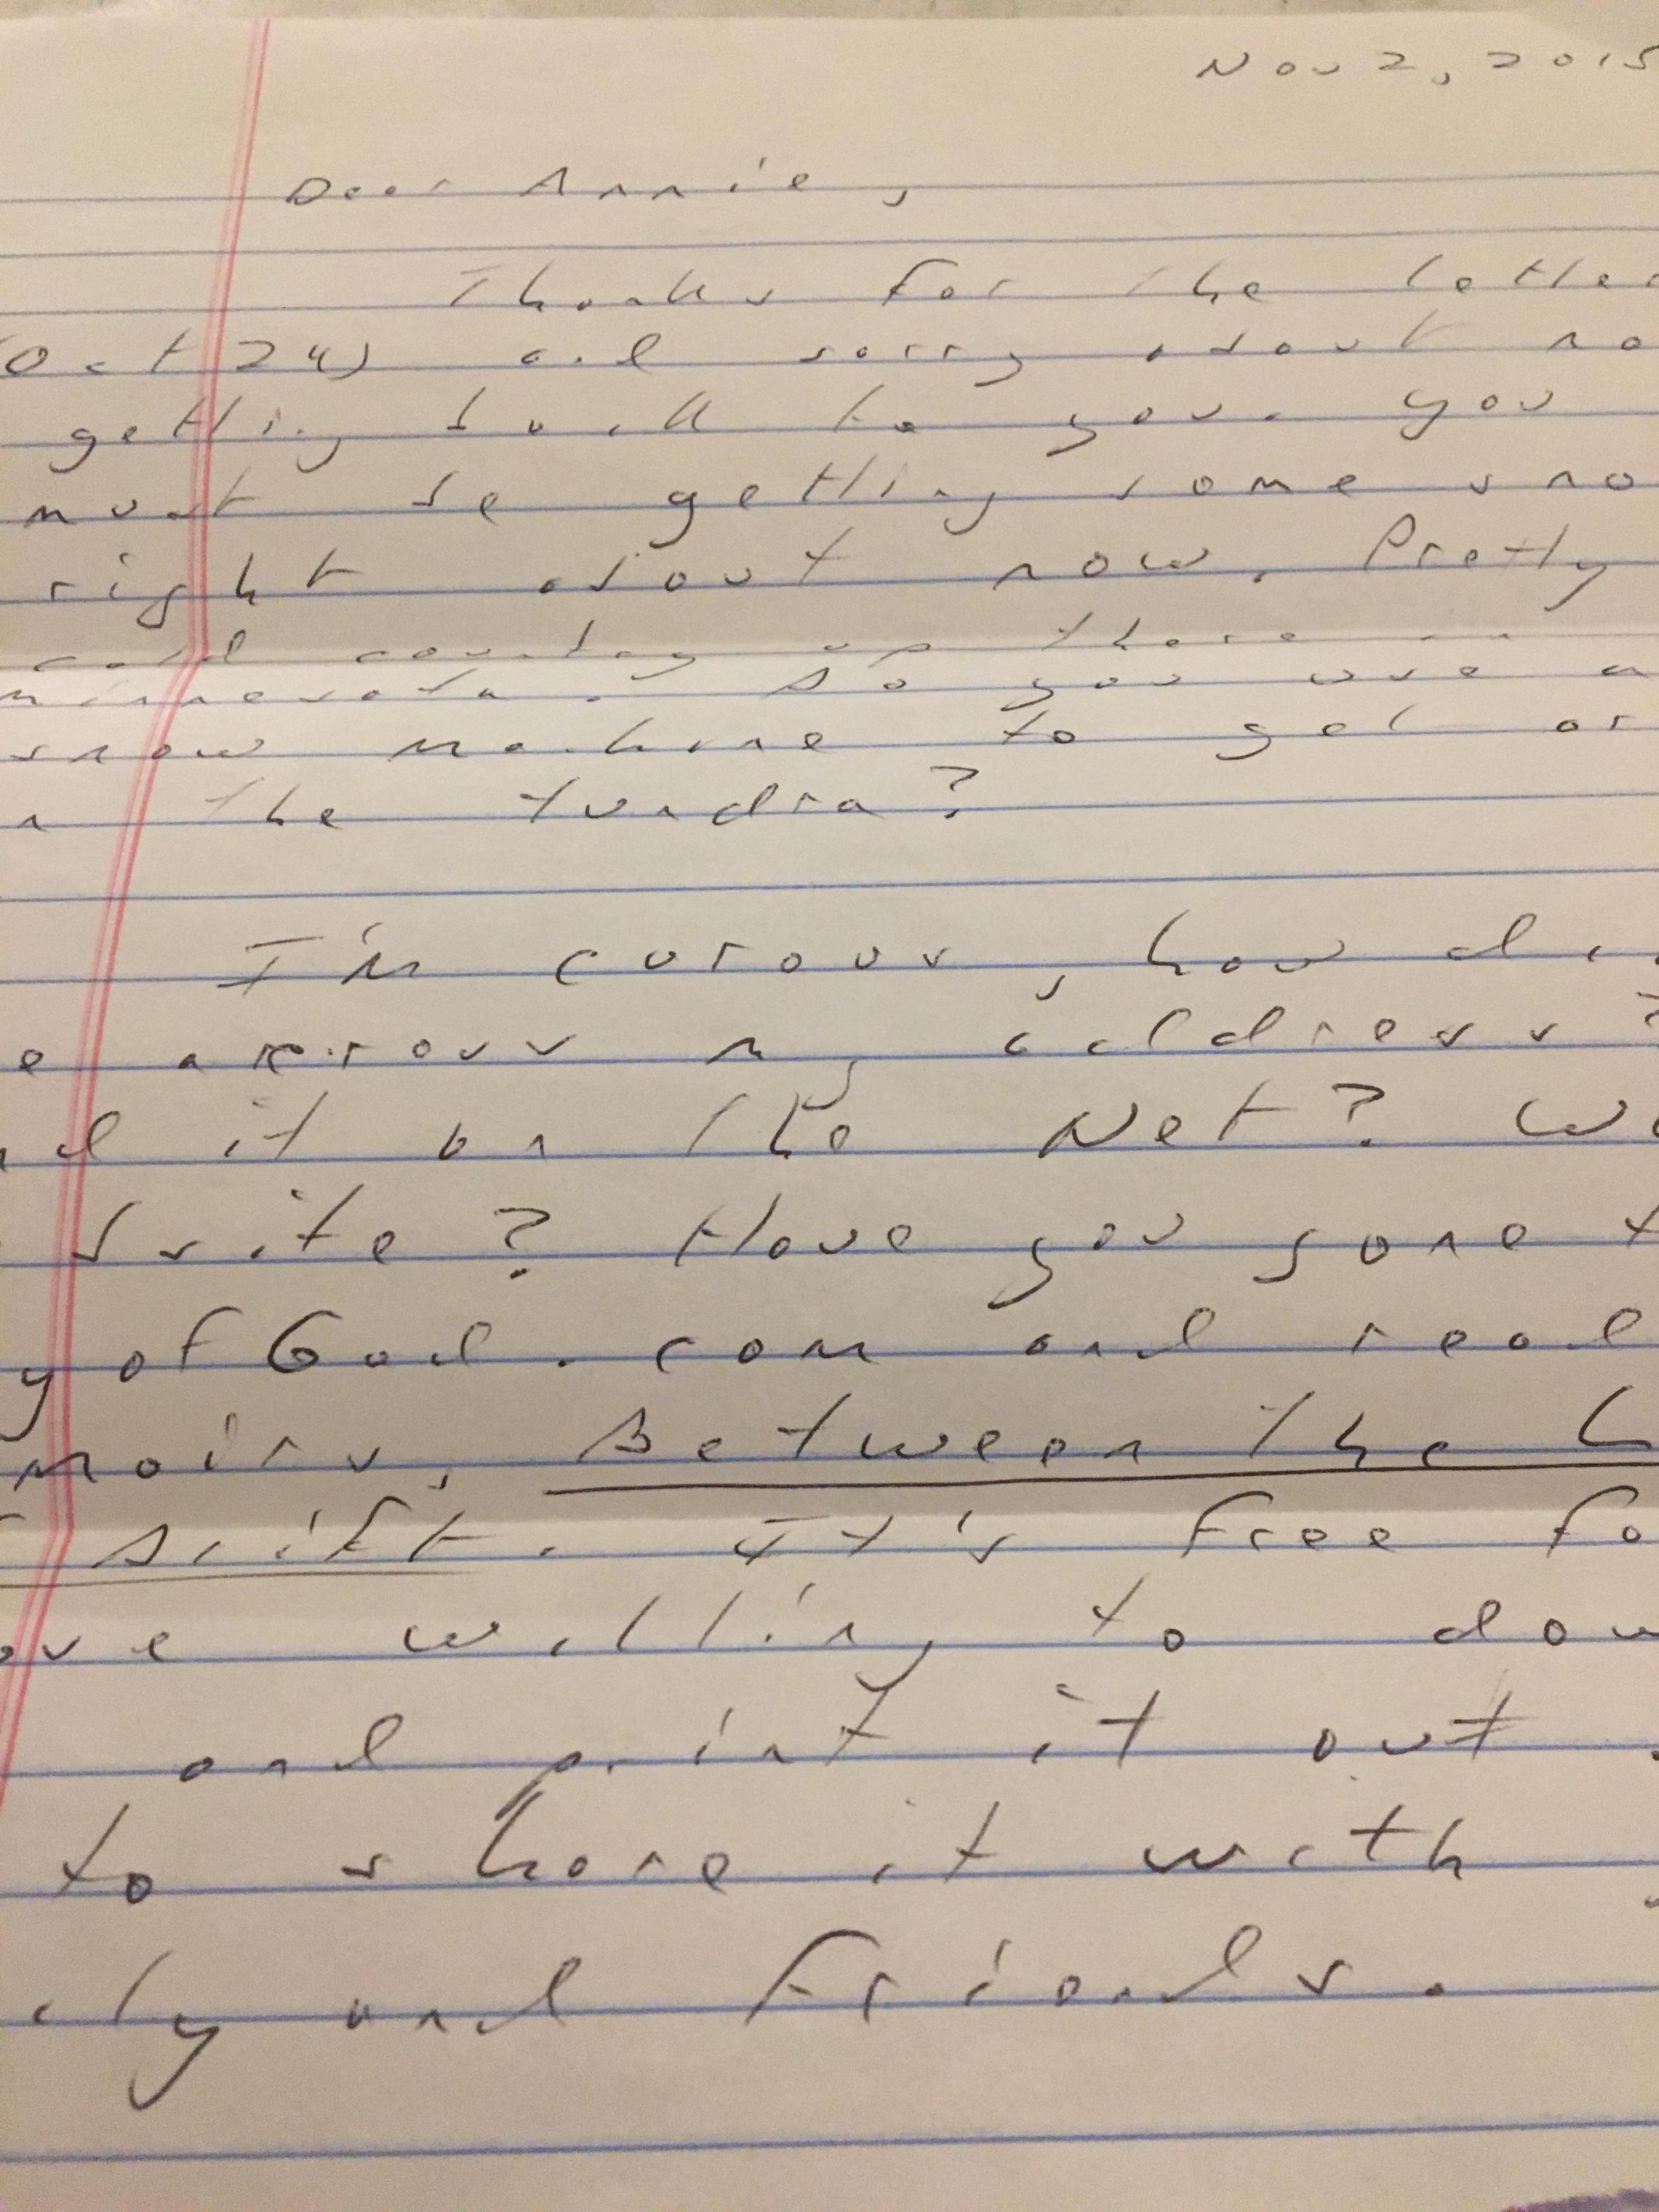 Nov 2, 2015
Dear Annie,
Thanks for the letter
(Oct 24) and sorry about no
getting back to you. you
must be getting some sno
right about now. Pretty
cold country up there in
minnesota. Do you use a
snow machine to get ar
n the tundra?
I'm curous, how di
e accross my address?
nd it on the Net? We
bsite? Have you gone t
y of God.com and read
moirs, Between the L
f Drift. It's free fo
ove willing to dow
and print it out
to share it with
ily and Friends.